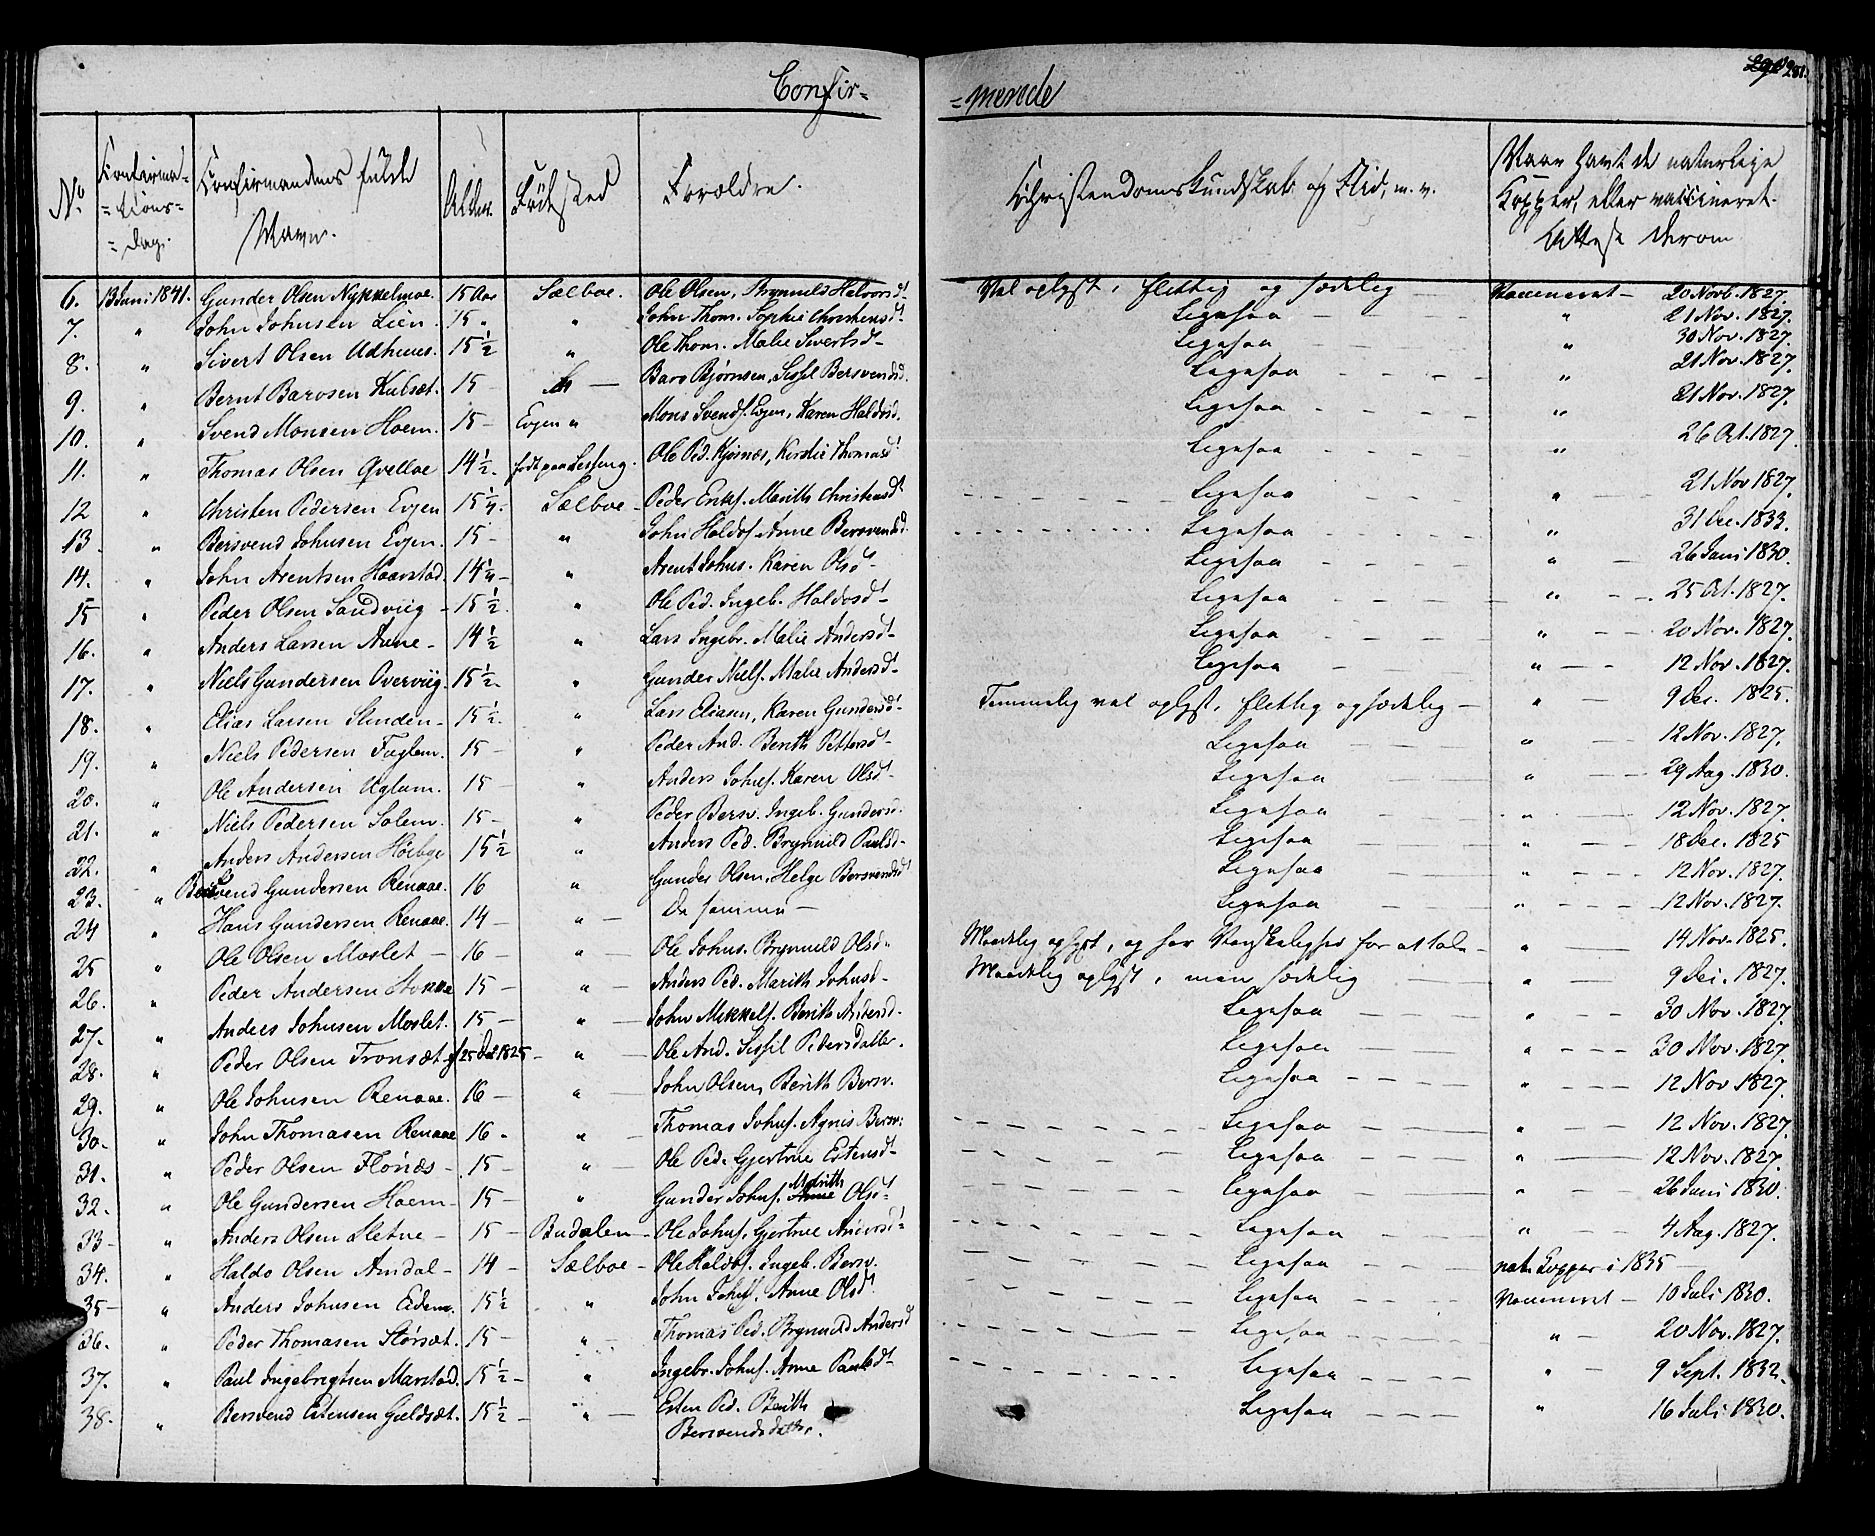 Confir=
=merede
281.
No
Confirma=
=tions=
=Dag.
Confirmandens fulde
Navn.
Alder.
Fødested
Forældre.
Christendomskundskab og Flid, m. v.
Naar havt de naturlige
Kopper, eller vaccineret.
Attest derom
6. 13 Juni 1841. Gunder Olsen Nykkelmoe. 15 Aar Sælboe. Ole Olsen, Brynnild Halvorsdt. Vel oplyst, flittig og sædelig — Vaccineret — 20 Novb. 1827.
7. " John Johnsen Lien. 15 " " John Thom. Sophie Christensdt. Ligesaa — " 21 Nov. 1827.
8. " Sivert Olsen Udhuus. 15 1/2 " Ole Thom. Malie Sivertsdt Ligesaa — " 30 Nov. 1827.
9. " Bernt Barosen Kulsæt. 15 — " — Baro Bjørnsen, Sissil Bersvendsd. Ligesaa — " 21 Nov. 1827.
10. " Svend Monsen Hoem. 15 — Evjen " Mons Svends. Evjen, Karen Haldosd. Ligesaa — " 21 Nov. 1827.
11. " Thomas Olsen Qvelloe 14 1/2. født paa Ole Ped. Kjøsnæs, Kirstie Thomasdt Ligesaa — " 26 Oct. 1827.
12 " Christen Pedersen Evjen 15 1/4. Sælboe — Peder Eriks. Marith Christensdt Ligesaa — " 21 Nov 1827.
13. " Bersvend Johnsen Evjen. 15 — " John Haldos. Anne Bersvendsd. Ligesaa — " 31 Dec. 1833.
14. " John Arentsen Haarstad. 14 1/4 — " Arent Johns. Karen Olsdt Ligesaa — " 26 Juni 1830.
15 " Peder Olsen Sandviig — 15 1/2. " Ole Ped. Ingeb. Haldosdt Ligesaa — " 25 Oct. 1827.
16. " Anders Larsen Aune — 14 1/2 " Lars Ingebr. Malie Andersdt Ligesaa — " 20 Nov. 1827.
17. " Niels Gundersen Overviig. 15 1/2. " Gunder Niels. Malie Andersdt Ligesaa — " 12 Nov. 1827.
18. " Elias Larsen Slinden — 15 1/2. " Lars Eliasen, Karen Gundersdt Temmelig vel oplyst, flittig og sædelig — " 9 Dec. 1825.
19. " Niels Pedersen Fuglem. 15 — " Peder And. Berith Pettersdt Ligesaa — " 12 Nov. 1827.
20. " Ole Andersen Uglem. 15 — " Anders Johns. Karen Olsdt Ligesaa — " 29 Aug. 1830.
21. " Niels Pedersen Solem. 15 — " Peder Bersv. Ingeb. Gundersd. Ligesaa — " 12 Nov. 1827.
22. " Anders Andersen Høibye 15 1/2 " Anders Ped. Brynnild Paulsd. Ligesaa — " 18 Dec. 1825
23. " Bersvend Gundersen Renaae. 16 " Gunder Olsen, Helge Bersvendsdt Ligesaa — " 12 Nov. 1827.
24 " Hans Gundersen Renaae. 14 — " — De samme — Ligesaa — " 12 Nov. 1827.
25 " Ole Olsen Moslet — 16 — " — Ole Johns. Brynnild Olsd. Maadelig oplyst, og har Vanskelighed for at tale — " 14 Nov. 1825.
26. " Peder Andersen Stokke 15 — " — Anders Ped. Marith Johnsd. Maadelig oplyst, men sædelig — " 9 Dec. 1827.
27. " Anders Johnsen Moslet. 15 — " — John Mikkels. Berith Andersd. Ligesaa — " 30 Nov. 1827.
28. " Peder Olsen Tronsæt f. 25 Oct 1825 — " — Ole And. Sissil Pedersdatter. Ligesaa — " 30 Nov. 1827.
29. " Ole Johnsen Renaae. 16 — " — John Olsen, Berith Bersv. Ligesaa — " 12 Nov. 1827.
30. " John Thomasen Renaae 16. " — Thomas Johns. Agnis Bersv. Ligesaa — " 12 Nov. 1827.
31. " Peder Olsen Flønæs — 15 — " — Ole Ped. Gjertrue Estensdt Ligesaa — " 12 Nov. 1827.
32. " Ole Gundersen Hoem — 15 — " Gunder Johns. Marith Olsdt Ligesaa — " 26 Juni 1830.
33 — " Anders Olsen Sletne — 15 — Budalen — Ole Johns. Gjertrue Andersdt Ligesaa — " 4 Aug. 1827.
34. " Haldo Olsen Amdal — 14 — Sælboe — Ole Haldos. Ingeb. Bersv. Ligesaa — nat. Kopper i 1835 —
35 — " Anders Johnsen Eidem. 15 1/2 " John Johns. Anne Olsd. Ligesaa — Vaccineret — 10 Juli 1830.
36. " Peder Thomasen Størsæt. 15 — " Thomas Ped. Brynnild Andersd Ligesaa — " 20 Nov. 1827.
37. " Paul Ingebrigtsen Marstad. 15 1/2 — " Ingebr. Johns. Anne Paulsdt Ligesaa — " 9 Sept. 1832.
38. " Bersvend Estensen Gieldsæt. 15 1/2 — " — Esten Ped. Berith Bersvendsdatter. Ligesaa — " 16 Juli 1830.